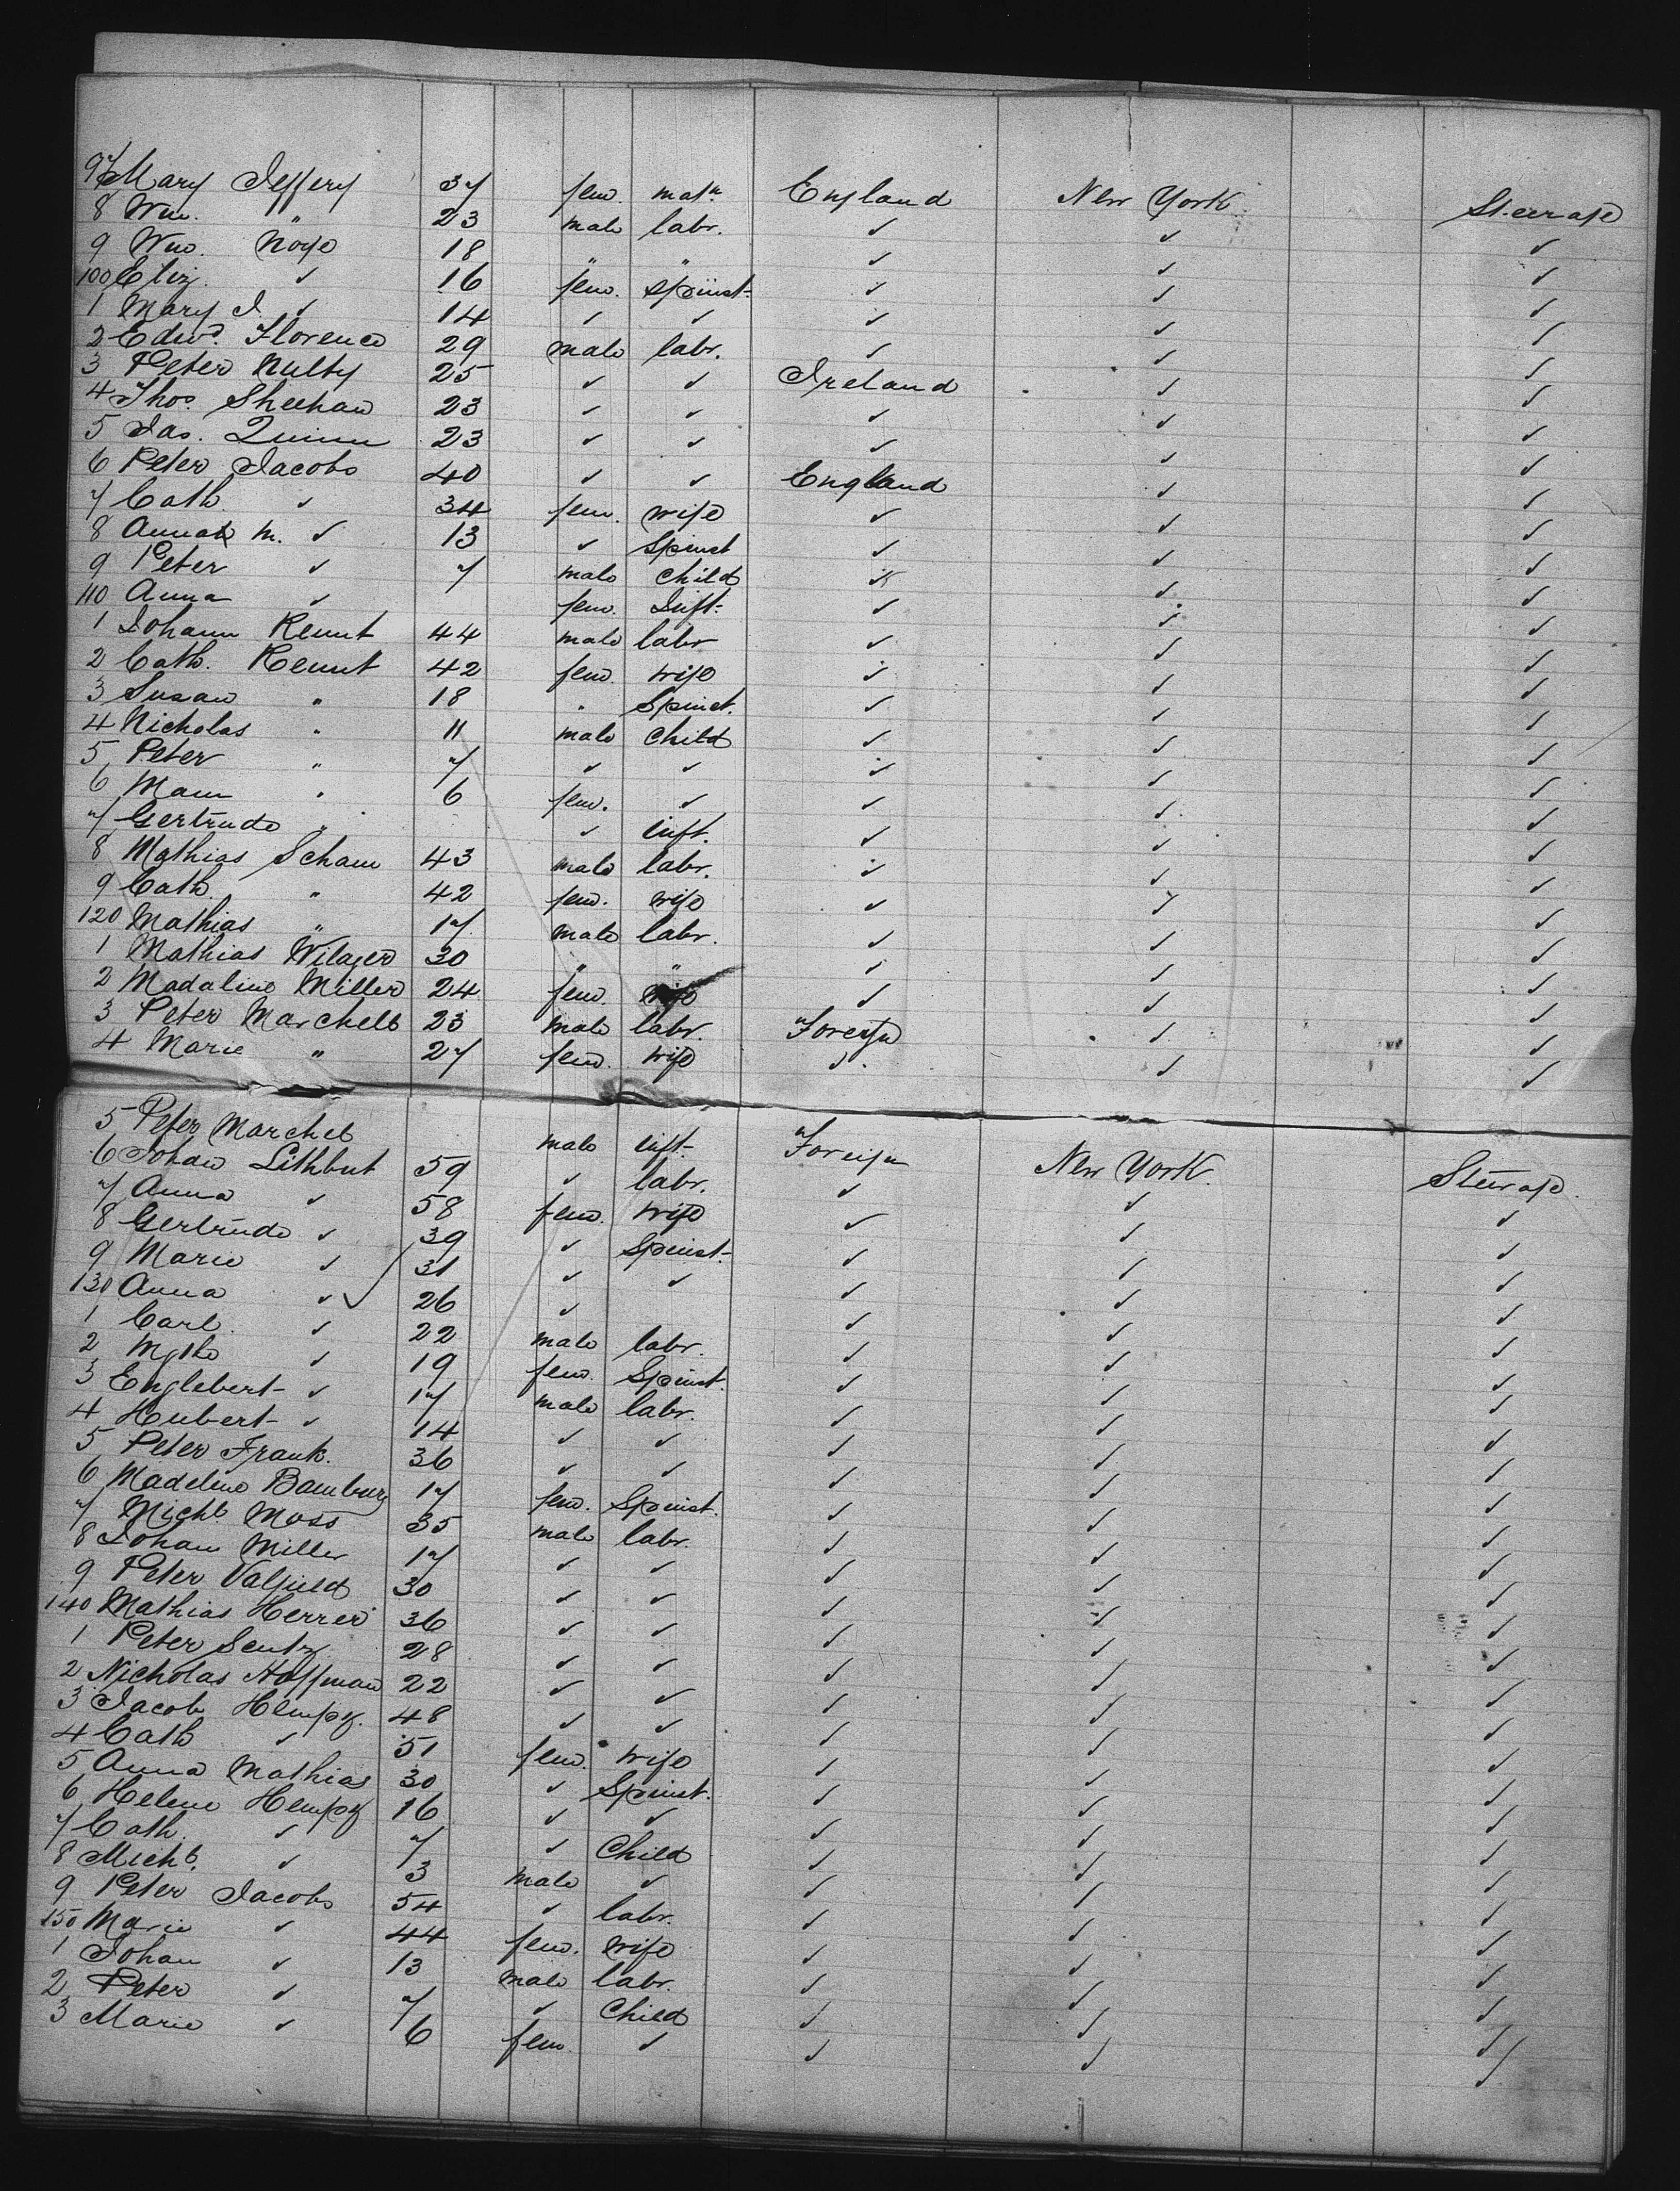 97 Mary Jeffery 37 fem. matn. England New York Steerage
8 Wm. " 23 male labr. ✓ ✓ ✓
9 Wm. Noye 18 " " ✓ ✓ ✓
100 Eliz. ✓ 16 fem. spinst. ✓ ✓ ✓
1 Mary J. ✓ 14 ✓ ✓ ✓ ✓ ✓
2 Edwd. Florence 29 male labr. ✓ ✓ ✓
3 Peter Nulty 25 ✓ ✓ Ireland ✓ ✓
4 Thos. Sheehan 23 ✓ ✓ ✓ ✓ ✓
5 Jas. Quinn 23 ✓ ✓ ✓ ✓ ✓
6 Peter Jacobs 40 ✓ ✓ England ✓ ✓
7 Cath. ✓ 34 fem. wife ✓ ✓ ✓
8 Anna M. ✓ 13 ✓ Spinst ✓ ✓ ✓
9 Peter ✓ 7 male Child ✓ ✓ ✓
110 Anna ✓ fem. Inft. ✓ ✓ ✓
1 Johann Kemut 44 male labr ✓ ✓ ✓
2 Cath. Kemut 42 fem. wife ✓ ✓ ✓
3 Susan " 18 " Spinst. ✓ ✓ ✓
4 Nicholas " 11 male Child ✓ ✓ ✓
5 Peter " 7 ✓ ✓ ✓ ✓ ✓
6 Mam " 6 fem. ✓ ✓ ✓ ✓
7 Gertrude " ✓ inft. ✓ ✓ ✓
8 Mathias Scham 43 male labr. ✓ ✓ ✓
9 Cath. " 42 fem. wife ✓ ✓ ✓
120 Mathias " 17 male labr. ✓ ✓ ✓
1 Mathias 30 " " ✓ ✓ ✓
2 Madaline Miller 24 fem. wife ✓ ✓ ✓
3 Peter Marchelt 23 male labr. Foreign ✓ ✓
4 Marie " 27 fem. wife ✓ ✓ ✓
5 Peter Marchelt male inft. Foreign New York. Steerage.
6 Johan Lithbut 59 ✓ labr. ✓ ✓ ✓
7 Anna ✓ 58 fem. wife ✓ ✓ ✓
8 Gertrude ✓ 39 ✓ Spinst. ✓ ✓ ✓
9 Marie ✓ 31 ✓ ✓ ✓ ✓ ✓
130 Anna ✓ 26 ✓ ✓ ✓ ✓
1 Carl. ✓ 22 male labr. ✓ ✓ ✓
2 ✓ 19 fem. Spinst. ✓ ✓ ✓
3 Englebert ✓ 17 male labr. ✓ ✓ ✓
4 Hubert ✓ 14 ✓ ✓ ✓ ✓ ✓
5 Peter Frank. 36 ✓ ✓ ✓ ✓ ✓
6 Madeline Bamburg 17 fem. Spinst. ✓ ✓ ✓
7 Michl. Moss 35 male labr. ✓ ✓ ✓
8 Johan Miller 17 ✓ ✓ ✓ ✓ ✓
9 Peter Valfield 30 ✓ ✓ ✓ ✓ ✓
140 Mathias Herrer 36 ✓ ✓ ✓ ✓ ✓
1 Peter Sentz 28 ✓ ✓ ✓ ✓ ✓
2 Nicholas Hoffman 22 ✓ ✓ ✓ ✓ ✓
3 Jacob Hempz. 48 ✓ ✓ ✓ ✓ ✓
4 Cath ✓ 51 fem. wife ✓ ✓ ✓
5 Anna Mathias 30 ✓ Spinst. ✓ ✓ ✓
6 Helene Hempz 16 ✓ ✓ ✓ ✓ ✓
7 Cath. ✓ 7 ✓ Child ✓ ✓ ✓
8 Michl. ✓ 3 male ✓ ✓ ✓ ✓
9 Peter Jacobs 54 ✓ labr. ✓ ✓ ✓
150 Marie ✓ 44 fem. wife ✓ ✓ ✓
1 Johan ✓ 13 male labr. ✓ ✓ ✓
2 Peter ✓ 7 ✓ Child ✓ ✓ ✓
3 Marie ✓ 6 fem ✓ ✓ ✓ ✓